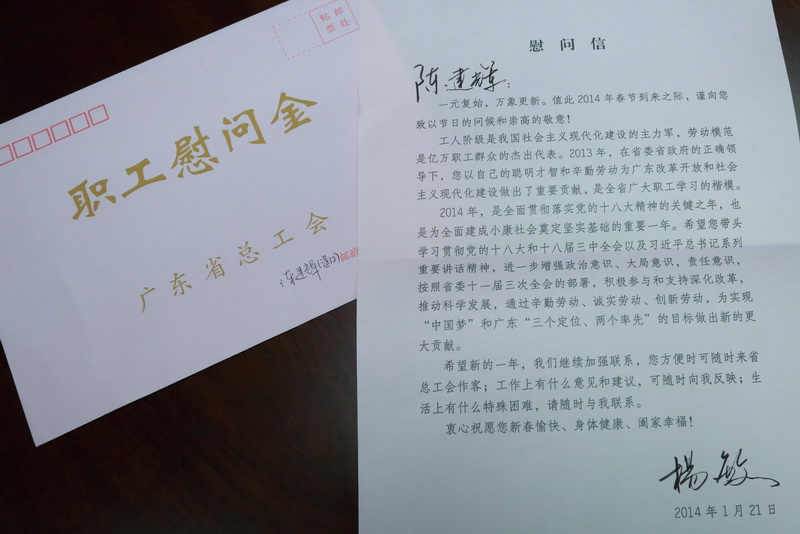 贴邮
票处
职工慰问金
广东省总工会
陈建辉(慰问)
慰问信
陈建辉:
一元复始，万象更新。值此2014年春节到来之际，谨向您
致以节日的问候和崇高的敬意!
工人阶级是我国社会主义现代化建设的主力军，劳动模范
是亿万职工群众的杰出代表。2013年，在省委省政府的正确领
导下，您以自己的聪明才智和辛勤劳动为广东改革开放和社会
主义现代化建设做出了重要贡献，是全省广大职工学习的楷模。
2014年，是全面贯彻落实党的十八大精神的关键之年，也
是为全面建成小康社会奠定坚实基础的重要一年。希望您带头
学习贯彻党的十八大和十八届三中全会以及习近平总书记系列
重要讲话精神，进一步增强政治意识、大局意识，责任意识，
按照省委十一届三次全会的部署，积极参与和支持深化改革，
推动科学发展，通过辛勤劳动、诚实劳动、创新劳动，为实现
“中国梦”和广东“三个定位、两个率先”的目标做出新的更
大贡献。
希望新的一年，我们继续加强联系，您方便时可随时来省
总工会作客；工作上有什么意见和建议，可随时向我反映；生
活上有什么特殊困难，请随时与我联系。
衷心祝愿您新春愉快、身体健康、阖家幸福!
杨敏
2014年1月21日